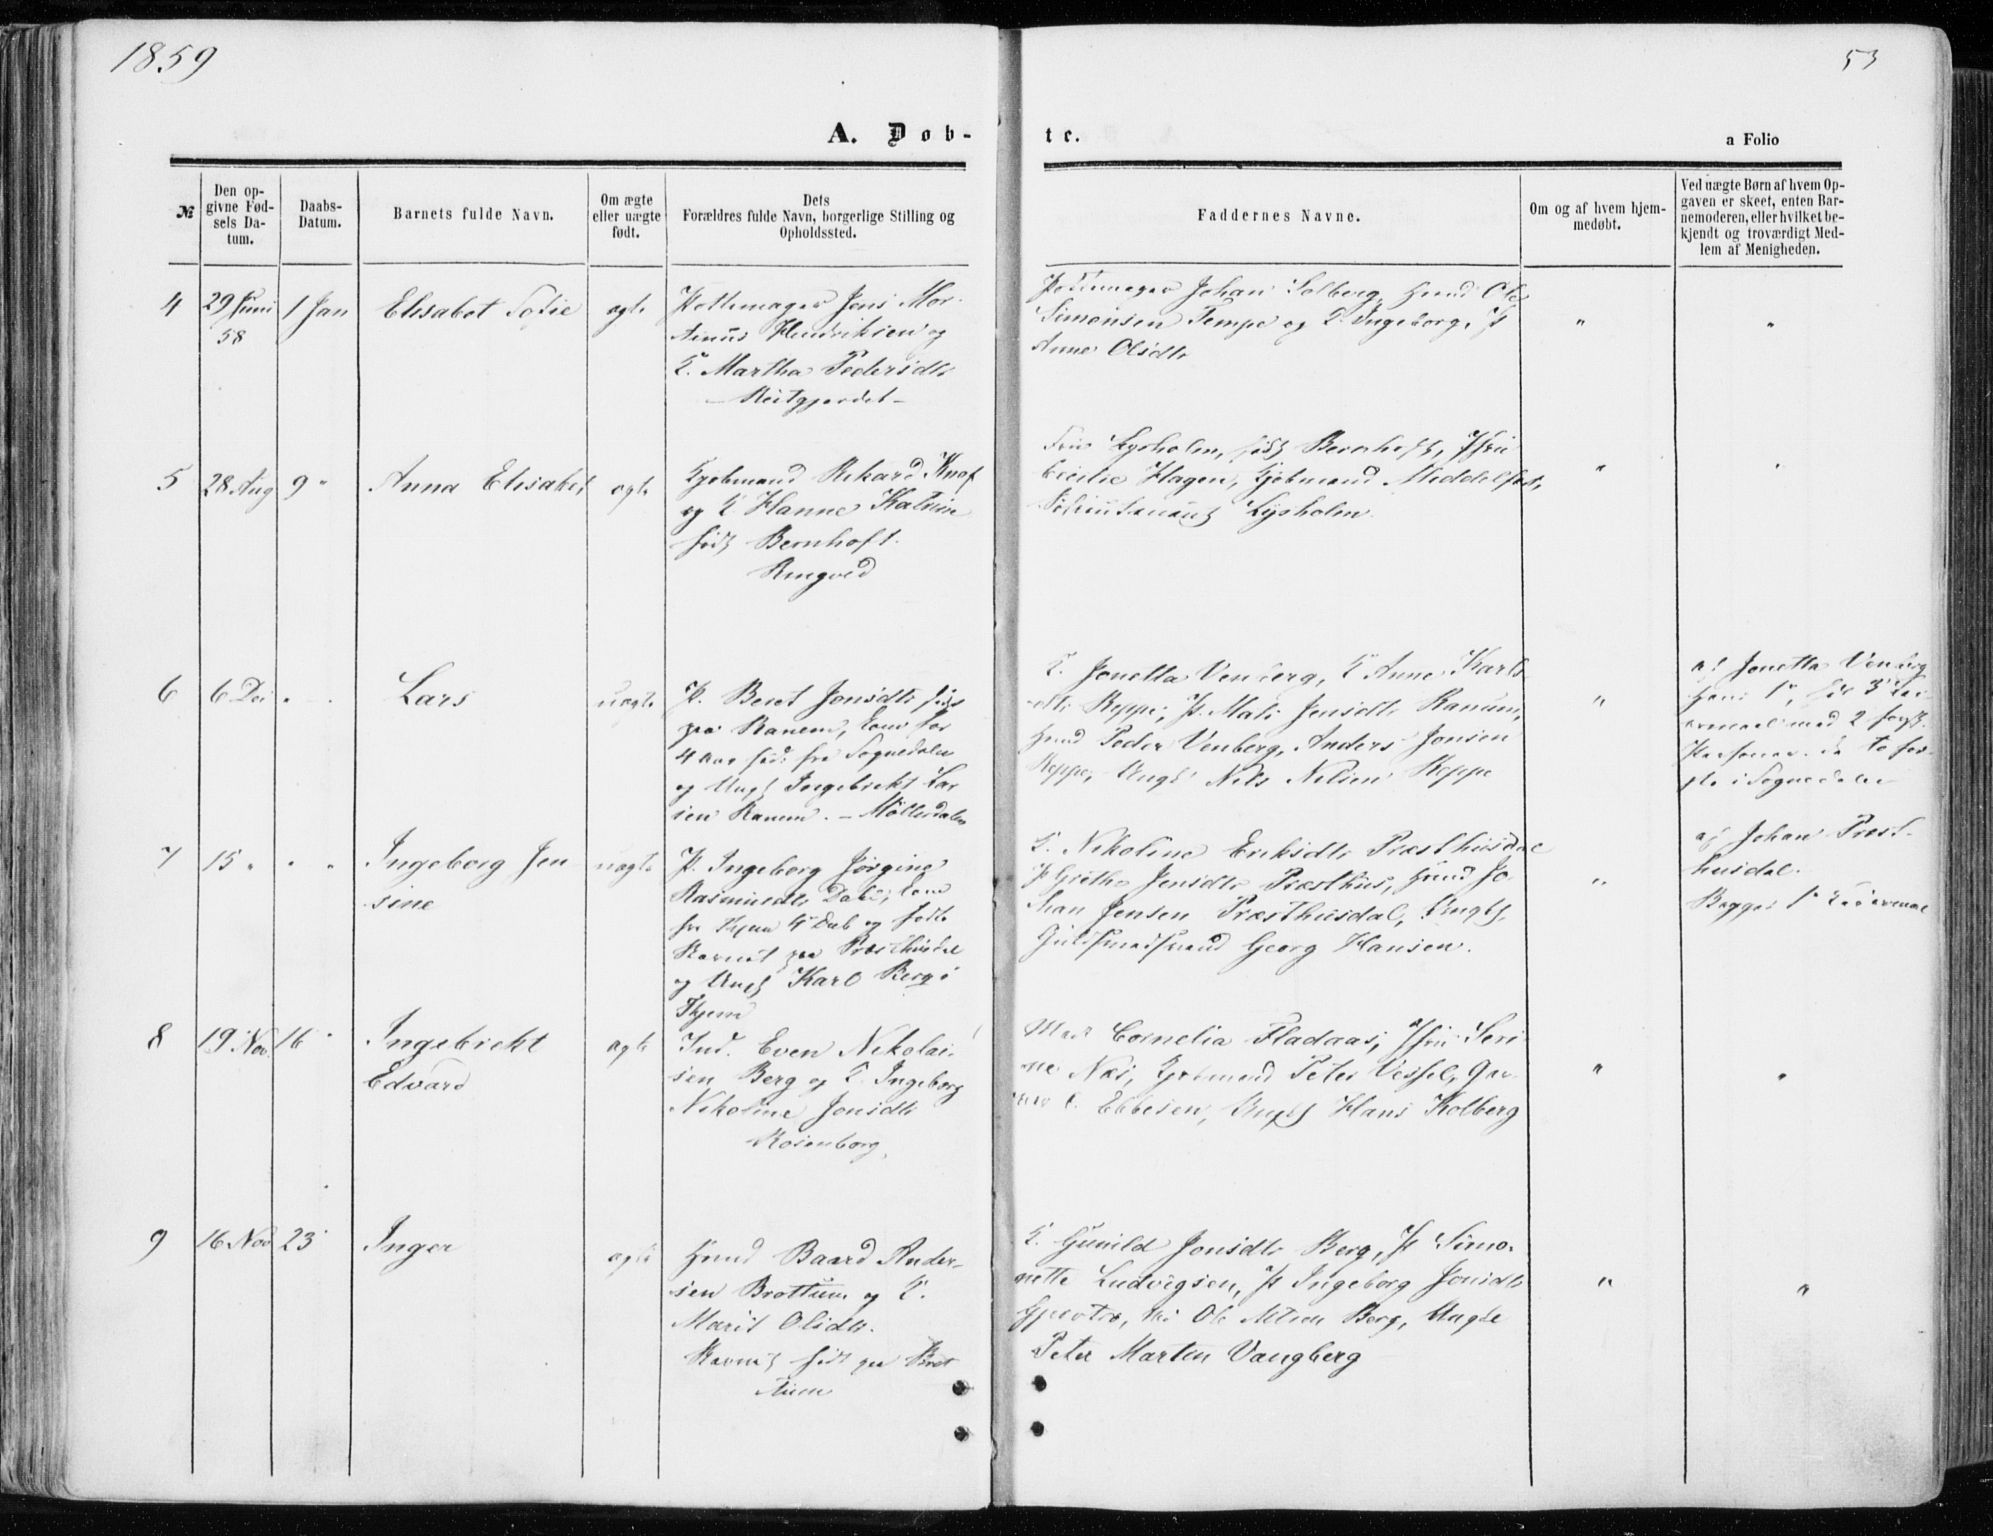 1859
53
A. Døb-
te.
a Folio
№
Den op-
givne Fød-
sels Da-
tum.
Daabs-
Datum.
Barnets fulde Navn.
Om ægte
eller uægte
født.
Dets
Forældres fulde Navn, borgerlige Stilling og
Opholdssted.
Faddernes Navne.
Om og af hvem hjem-
medøbt.
Ved uægte Børn af hvem Op-
gaven er skeet, enten Bar-
nemoderen, eller hvilket be-
kjendt og troværdigt Med-
lem af Menigheden.
4
29 Juni
58
1 Jan
Elisabet Sofie
ægte
Pottemager Jens Mar-
tinus Hendriksen og
K. Martha Pedersdtr
Reitgjerdet
Pottemager Johan Solberg, Hmd Ole
Simonsen Tempe og K. Ingeborg, P
Anne Olsdtr
"
"
5
28 Aug
9 "
Anna Elisabet
ægte
Kjøbmand Rikard Knof
og K Hanne Katrine
født Bernhoft.
Ringved
Fru Lysholm, født Bernhoft, Jfru
Cecilie Hagen, Kjøbmand Middelfart,
Lysholm
"
"
6
6 De
"
Lars
uægte
P. Beret Jonsdtr
paa Ranem, kom for
4 Aar sid. fra Sognedalen
og Ungk Ingebrikt Lar
sen Ranem. - Møllerdalen
K. Jonetta Venberg, K Anne Karls
dtr Reppe, P. Mali Jensdtr Ranum,
Hmd Peder Venberg, Anders Jonsen
Reppe, Ungk Nils Nilsen Reppe
"
af Jonetta Venberg
Hans 1ste, 3die Lei
ermaal med 2 forsk.
Personer. De to før-
ste i Sognedalen
7
15 "
" "
Ingeborg Jen
sine
uægte
P. Ingeborg Jørgine
Rasmusdtr Dahl, kom
fra Thjem og fødte
Barnet paa Præsthusdal
og Ungk Karl Berg i
Thjem
K. Nikoline Eriksdtr Præsthusdal
P Grethe Jensdtr Præsthus, Hmd Jo-
han Jensen Præsthusdal, Ungk,
Georg Hansen.
"
af Johan Præst-
husdal.
Begges 1ste Leiermaal
8
19 Nov
16 "
Ingebrikt
Edvard
ægte
Ind. Even Nikolai
sen Berg og K. Ingeborg
Nikoline Jonsdtr
Rosenborg
Mad Cornelia Fladaas, Jfru Seri
ne Næs, Kjøbmand Peter Vessel, Gar
ver C. Ebbesen, Ungk Hans Kolberg
"
"
9
16 Nov
23
Inger
ægte
Hmd Baard Ander-
sen Brottum og K.
Marit Olsdtr.
Barnet født paa Brot
tum
K. Gunild Jonsdtr Berg, P Simo-
nette Ludvigsen, P Ingeborg Jonsdtr
Ole Nilsen Berg, Ungk
Peter Martin Vangberg
"
"